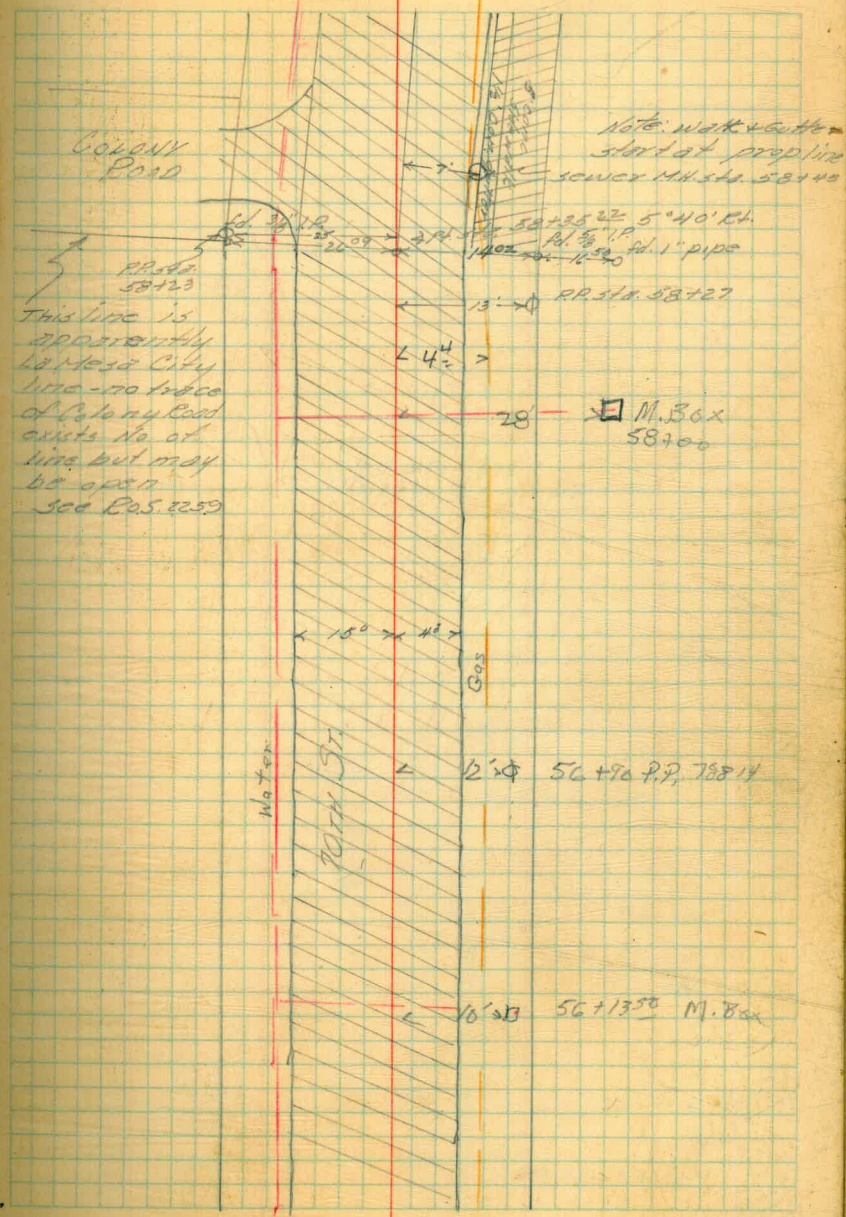 COLONY
ROAD
5' CONC
1½' CONC
Note: walk & Gutter
start at prop line
7'
sewer M.H. sta. 58+45
fd. 3/8" I.P.
26 09
58+35 22 5°40' Rt.
14 02
fd. 5/8" I.P.
16 50
fd. 1" pipe
P.P. sta.
58+23
13'
P.P. sta. 58+27
This line is
apparently
La Mesa City
line - no trace
of Colony Road
exists No. of
line but may
be open
see R.o.S. 2259
4 4
28'
M. Box
58+00
15 0
4 8
Gas
Water
70TH ST.
12'
56+90 P.P. 78814
10'
56+13 50 M. Box